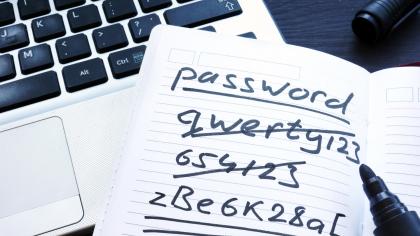 J K L
M < >
Alt Ctrl
password
qwerty123
654123
zBe6K28a[